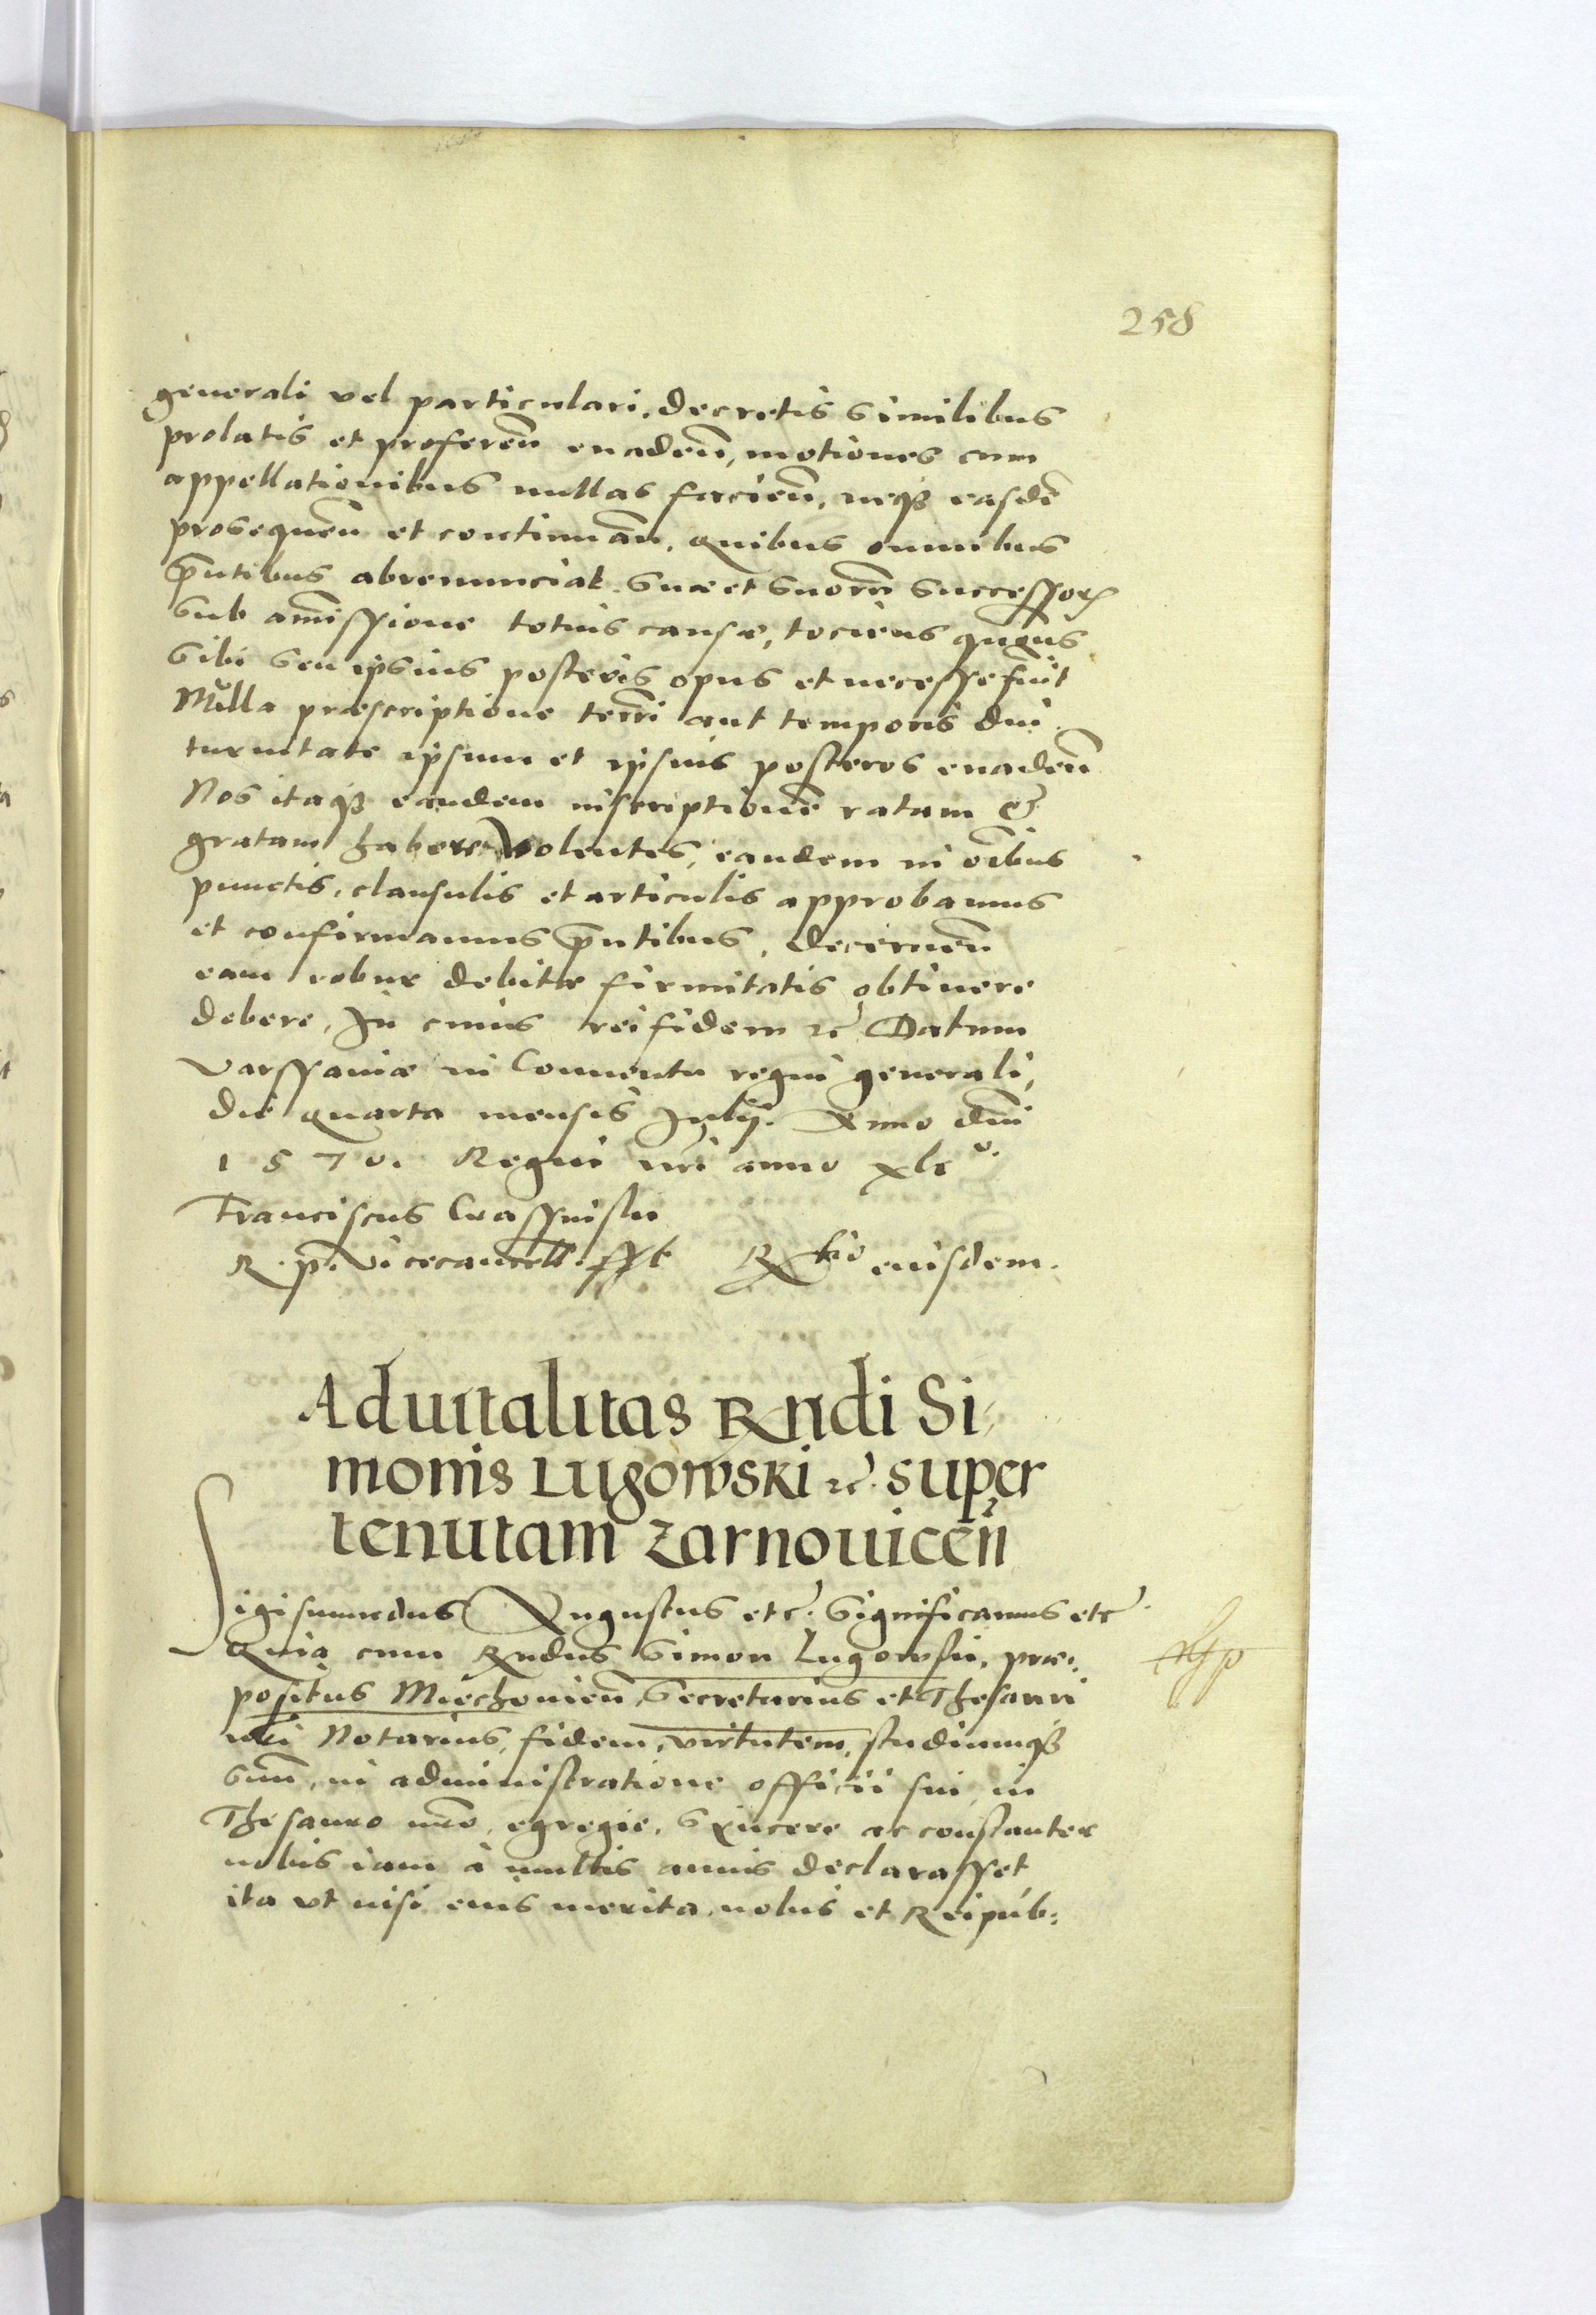 258
generali vel particulari, decretis similibus
prolatis et proferen̄ euaden̄, motiones cum
appellationibus nullas facien̄, neqꝫ easdē
prosequen̄ et continuan̄, quibus omnibus
p̄ntibus abrenunciat suae et suorū successorꝝ
sub amissione totius causae, tociens quociēs
sibi seu ipsius posteris opus et necesse fuerit
Nulla praescriptione terrae aut temporis diu
turnitate ipsum et ipsius posteros euaden̄
Nos itaqꝫ eandem inscriptionē ratam et
gratam habere volentes, eandem in oībus
punctis, clausulis et articulis approbamus
et confirmamus p̄ntibus, decernen̄
eam robur debitae firmitatis obtinere
debere, In cuius rei fidem etc Datum
Varssauiae in Conuentu regni generali,
die quarta mensis Julij. Anno dn̄i
1570. Regni nr̄i anno xlꝭ°.
Franciscus Crassinski
R. p. Vicecancell. sst Rel̄tio eiusdem.
Aduitalitas Rn̄di Si
monis Lugowski etc. super
tenutam Zarnouicen̄
Sigismundus Augustus etc. Significamus etc.
Quia cum Rn̄dus Simon Lugowski, prae:
positus Miechouien̄, Secretarius et Thesauri
nr̄i Notarius, fidem, virtutem, studiumqꝫ
suum, in administratione officii sui, in
Thesauro nr̄o, egregie, syncere ac constanter
nobis iam à multis annis declarasset,
ita vt nisi eius merita, nobis et Reipub: